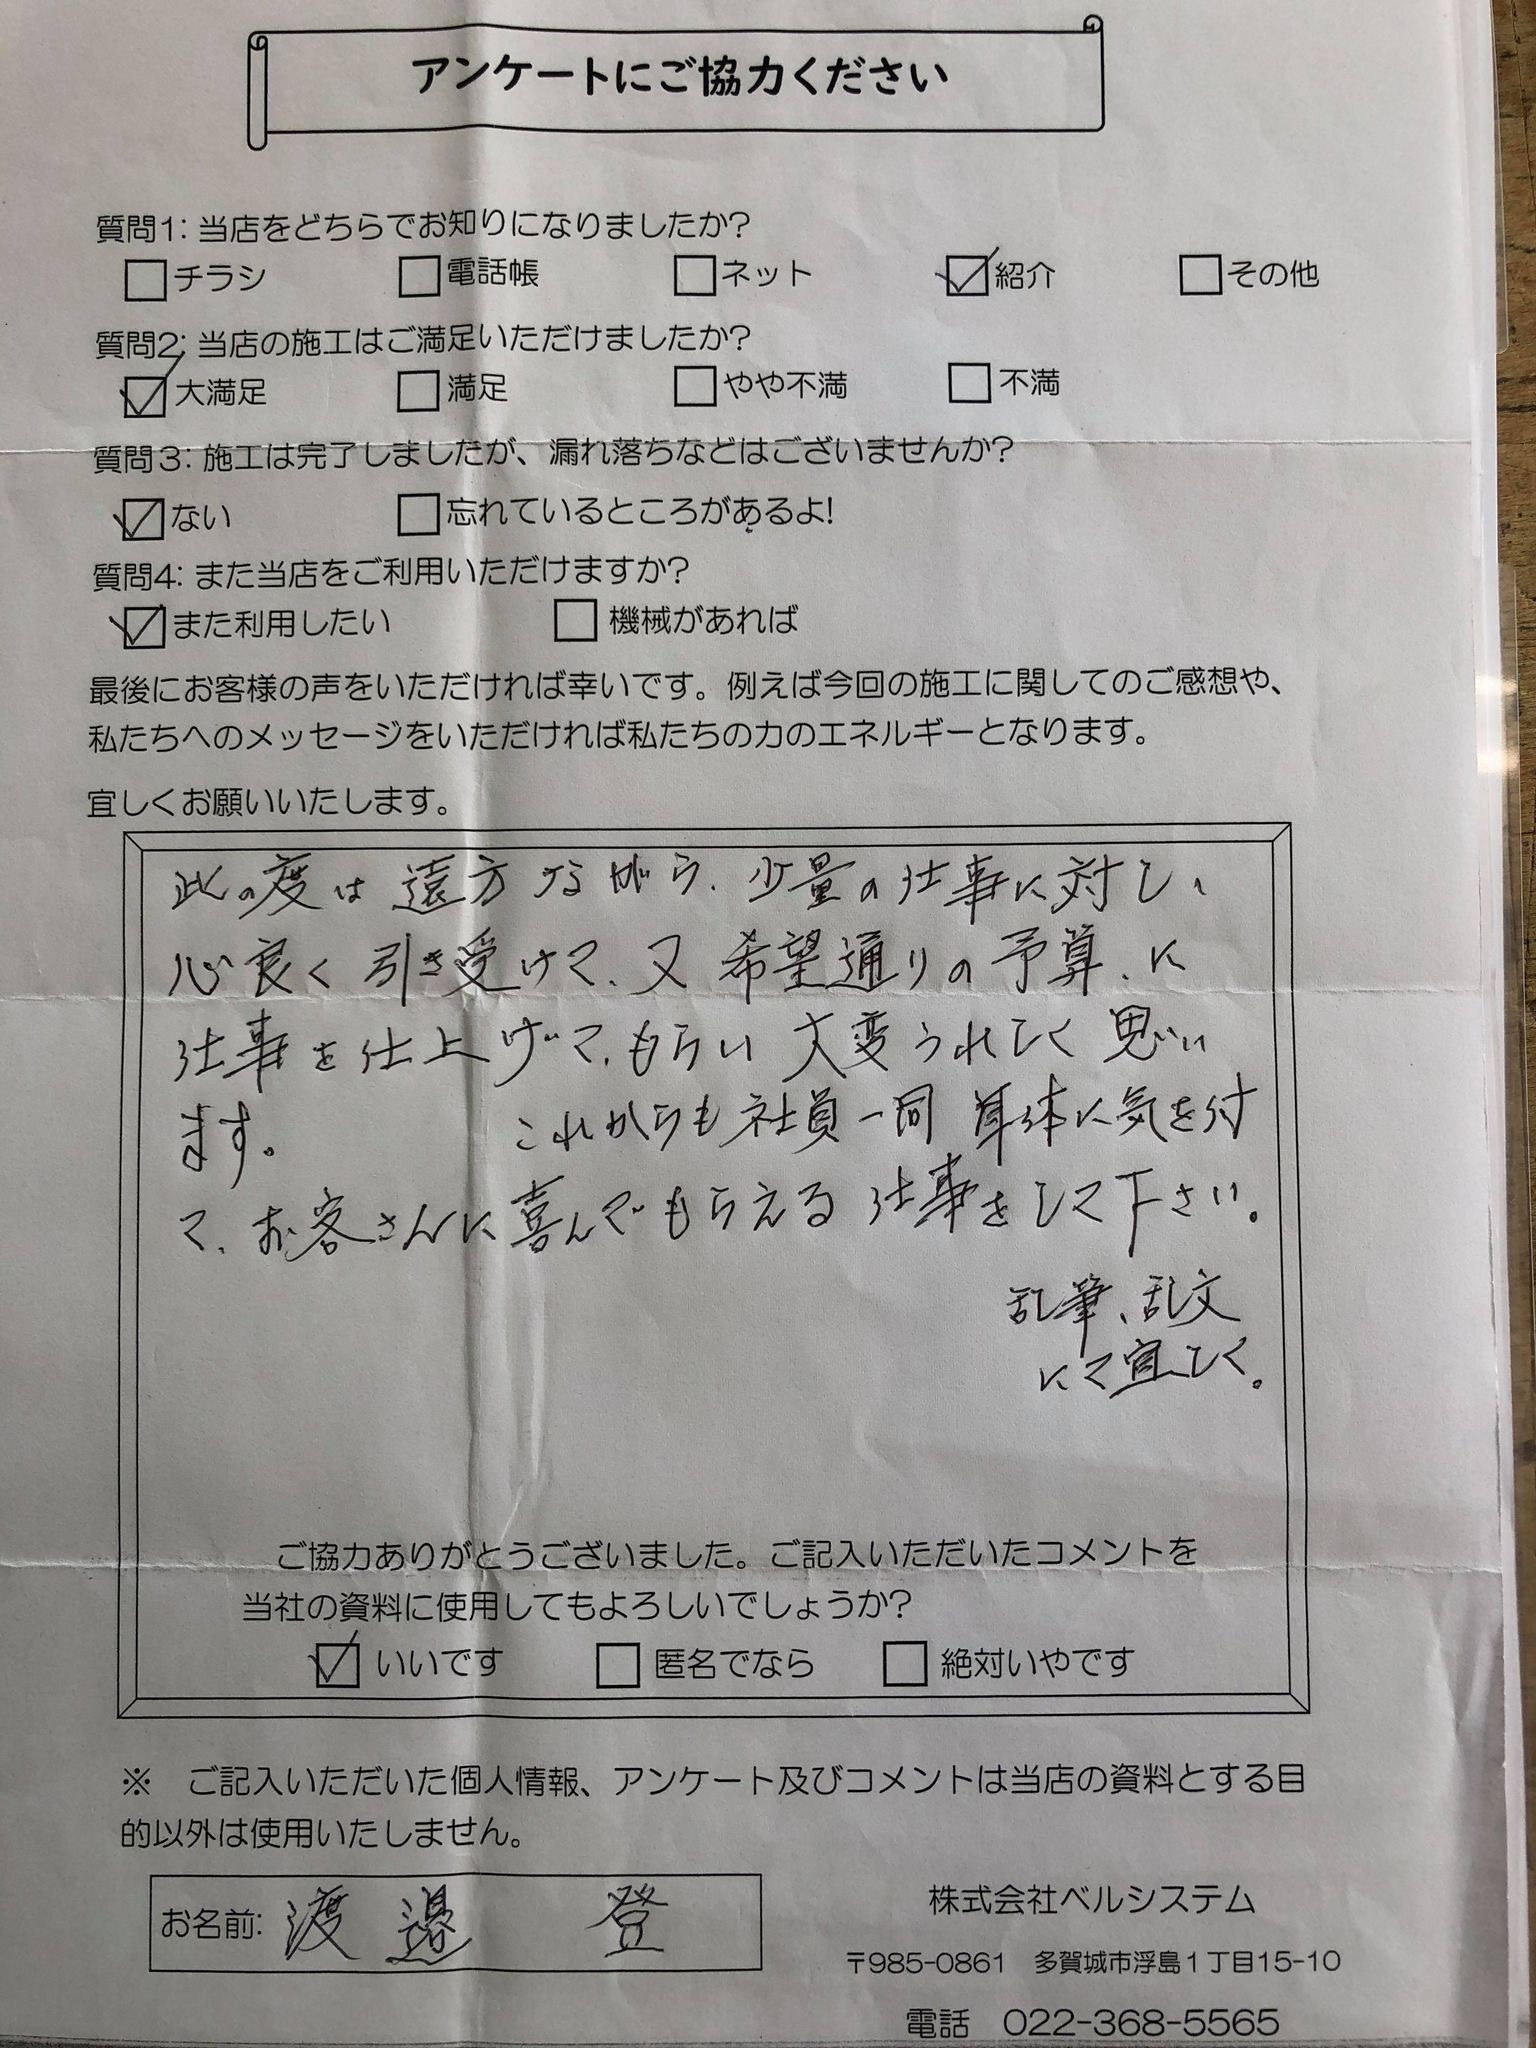 アンケートにご協力ください
質問1: 当店をどちらでお知りになりましたか?
チラシ 電話帳 ネット 紹介 その他
質問2: 当店の施工はご満足いただけましたか?
大満足 満足 やや不満 不満
質問3: 施工は完了しましたが、漏れ落ちなどはございませんか?
ない 忘れているところがあるよ!
質問4: また当店をご利用いただけますか?
また利用したい 機械があれば
最後にお客様の声をいただければ幸いです。例えば今回の施工に関してのご感想や、
私たちへのメッセージをいただければ私たちの力のエネルギーとなります。
宜しくお願いいたします。
此の度は遠方ながら、少量の仕事に対し、
心良く引き受けて、又希望通りの予算、に
仕事を仕上げて、もらい大変うれしく思い
ます。 これからも社員一同身体に気を付
て、お客さんに喜んでもらえる仕事をして下さい。
乱筆、乱文
にて宜しく。
ご協力ありがとうございました。ご記入いただいたコメントを
当社の資料に使用してもよろしいでしょうか?
いいです 匿名でなら 絶対いやです
※ ご記入いただいた個人情報、アンケート及びコメントは当店の資料とする目
的以外は使用いたしません。
お名前: 渡邉 登
株式会社ベルシステム
〒985-0861 多賀城市浮島1丁目15-10
電話 022-368-5565